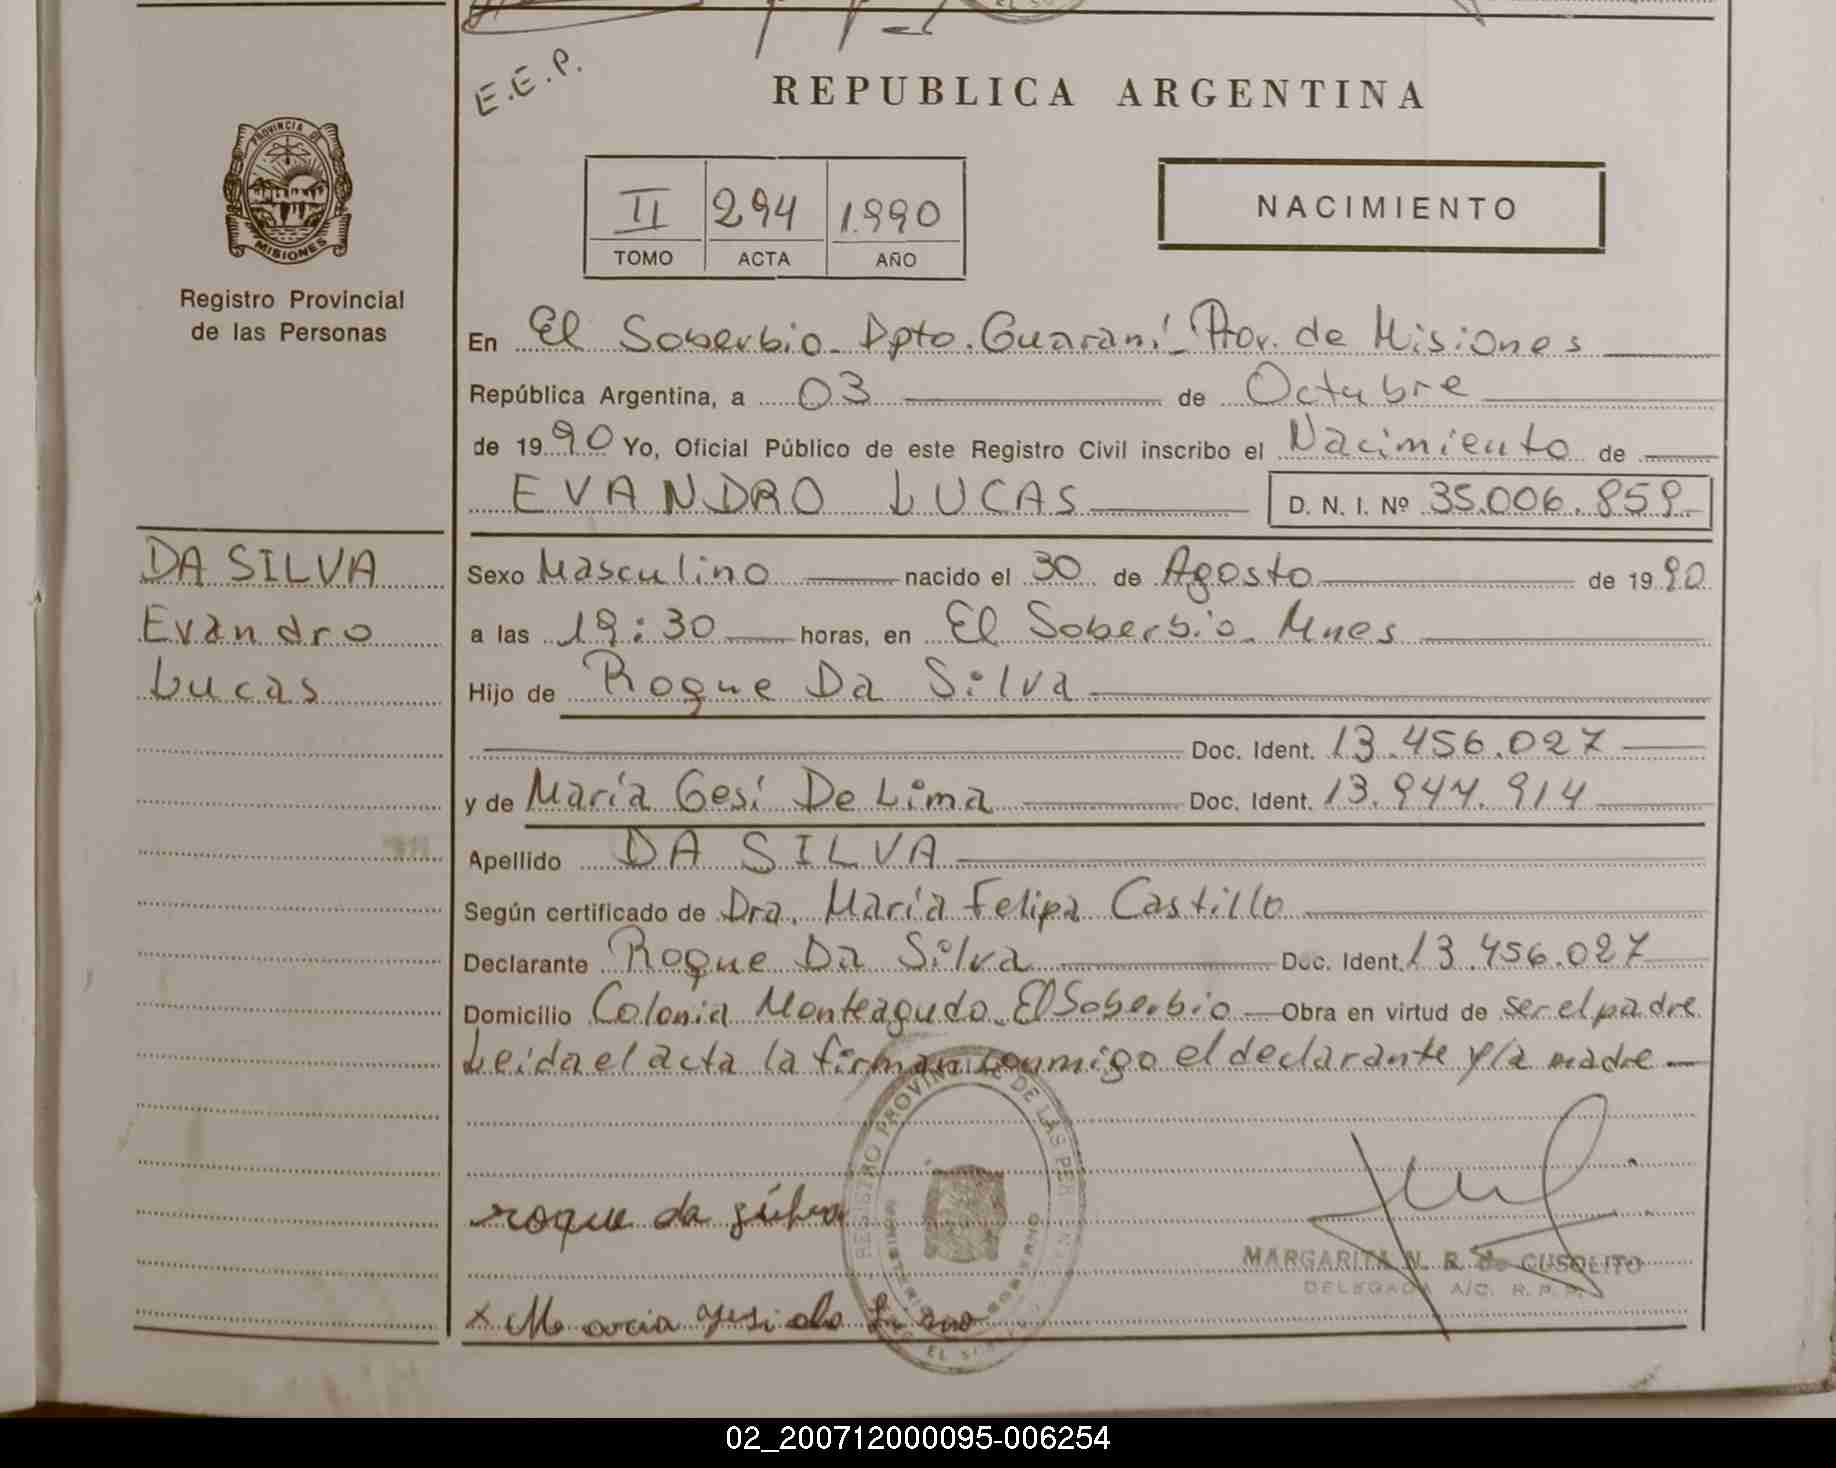 E.E.P.
REPUBLICA ARGENTINA
PROVINCIA DE
MISIONES
Registro Provincial
de las Personas
II 294 1.990
TOMO ACTA AÑO
NACIMIENTO
En El Soberbio - Dpto. Guaraní - Pror. de Misiones
República Argentina, a 03 de Octubre
de 1990 Yo, Oficial Público de este Registro Civil inscribo el Nacimiento de
EVANDRO LUCAS D. N. I. Nº 35.006.859
DA SILVA
Evandro
Lucas
Sexo Masculino nacido el 30 de Agosto de 1990
a las 19:30 horas, en El Soberbio - Mnes
Hijo de Roque Da Silva
Doc. Ident. 13.456.027
y de María Gesi De Lima Doc. Ident. 13.944.914
Apellido DA SILVA
Según certificado de Dra. María Felipa Castillo
Declarante Roque Da Silva Doc. Ident. 13.456.027
Domicilio Colonia Monteagudo - El Soberbio Obra en virtud de ser el padre
Leida el acta la firman conmigo el declarante y la madre
REGISTRO PROVINCIAL DE LAS PER
roque da silva
MARGARITA N. R. de CUSOLITO
DELEGADA A/C. R. P. P.
x Maria gesi de Lima
02_200712000095-006254